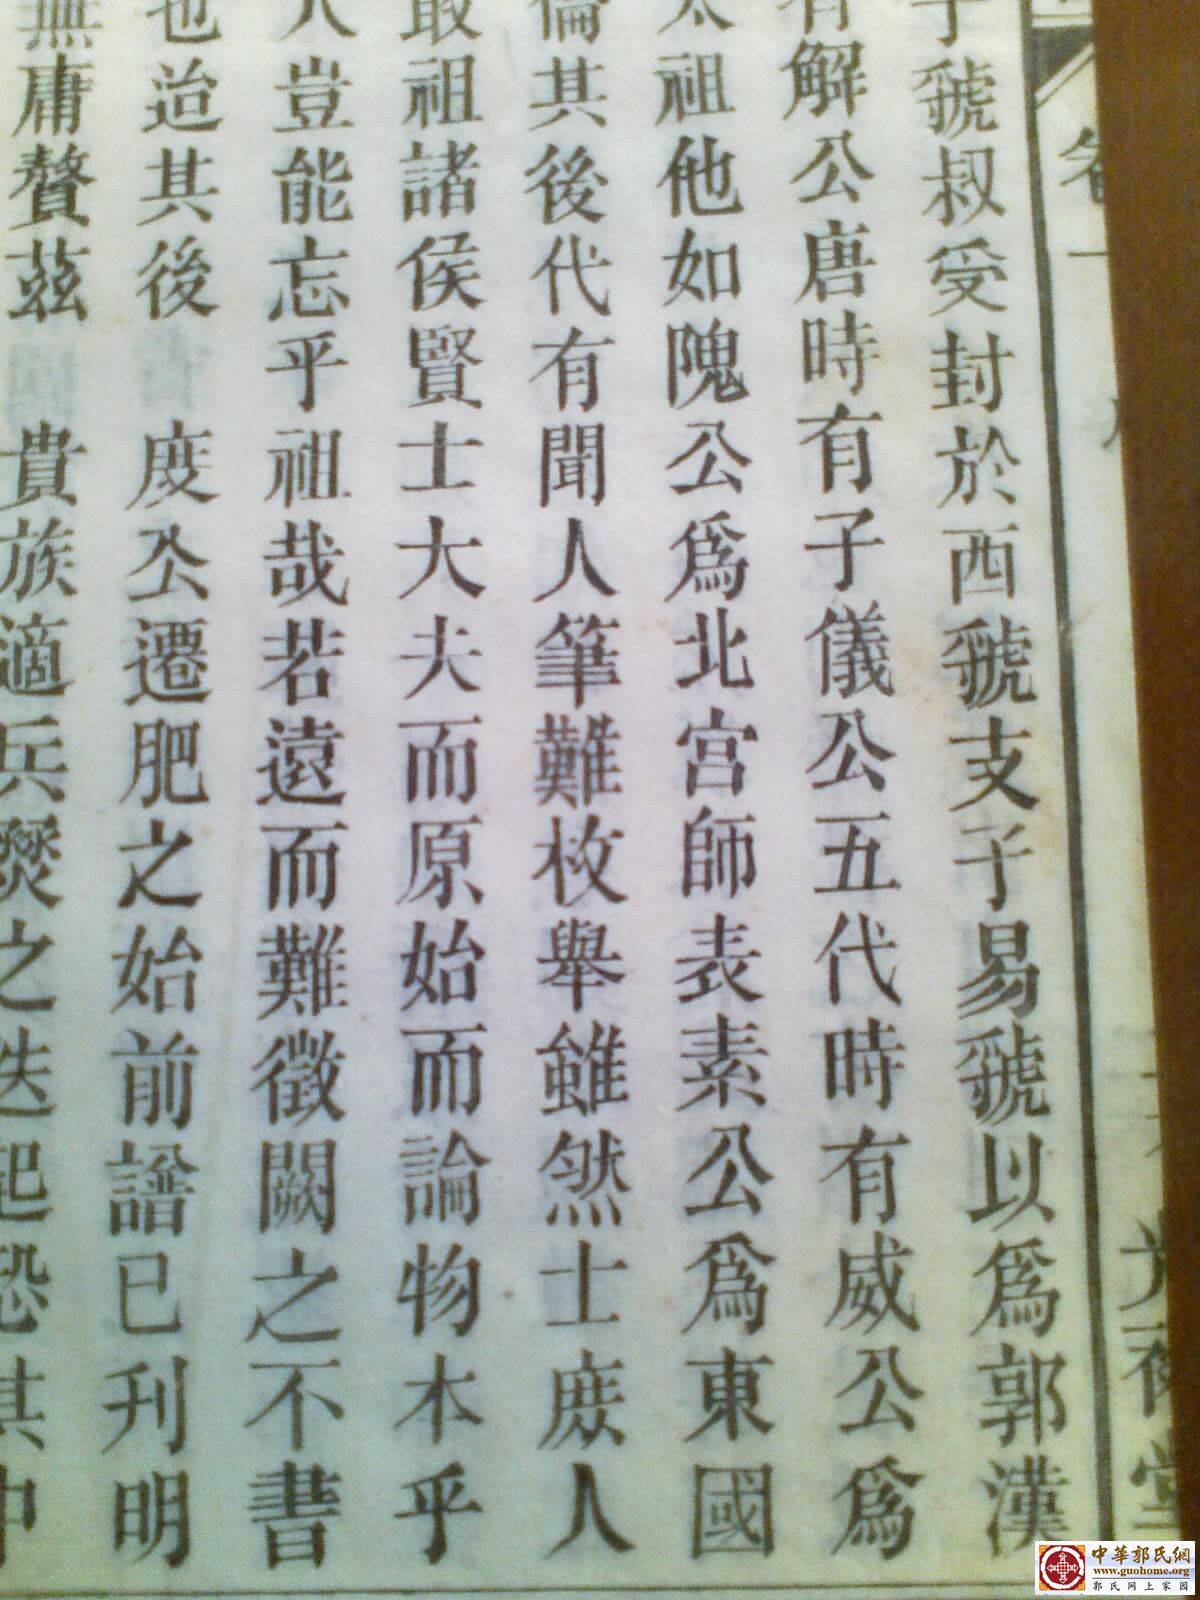 子虢叔受封於西虢支子易虢以為郭漢
有解公唐時有子儀公五代時有威公為
太祖他如隗公為北宮師表素公為東國
倫其後代有聞人筆難枚舉雖然士庶人
取祖諸侯賢士大夫而原始而論物本乎
人豈能忘乎祖哉若遠而難徵闕之不書
也迨其後 度公遷肥之始前譜已刊明
無庸贅茲 貴族適兵燹之迭起恐其中
卷一
堂
中華郭氏網
www.guohome.org
郭氏网上家园